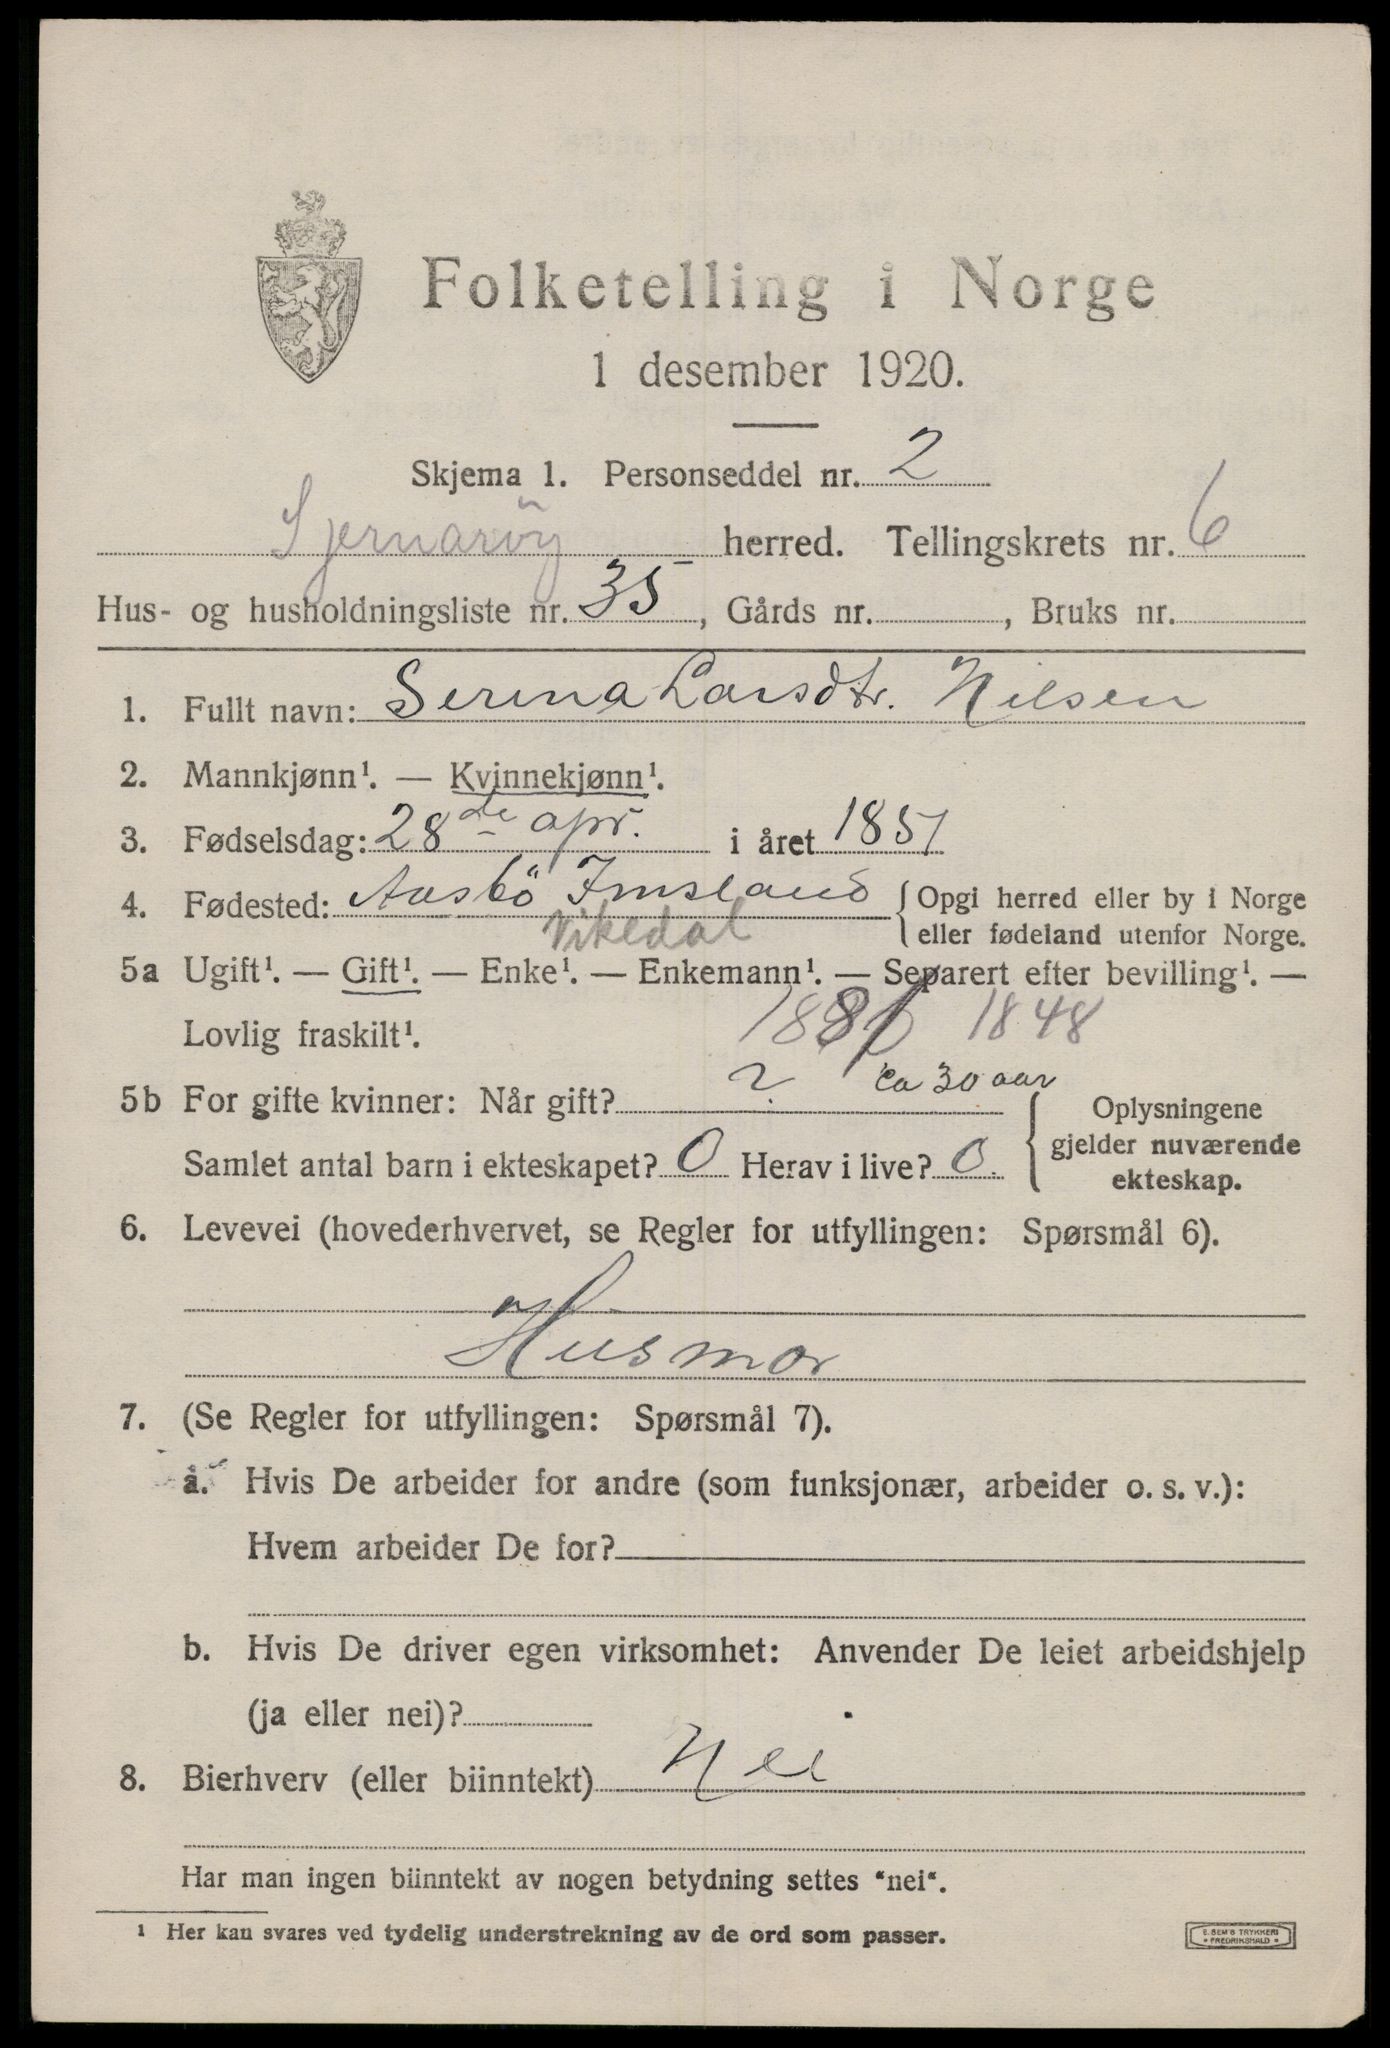 Folketelling i Norge
1 desember 1920.
Skjema 1. Personseddel nr. 2
Sjernarøy herred. Tellingskrets nr. 6
Hus- og husholdningsliste nr. 35, Gårds nr. , Bruks nr.
1. Fullt navn: Serina Larsdtr. Nilsen
2. Mannkjønn¹. — Kvinnekjønn¹.
3. Fødselsdag: 28de apr. i året 1851
4. Fødested: Aasbö Imsland { Opgi herred eller by i Norge
Vikedal eller fødeland utenfor Norge.
5a Ugift¹. — Gift¹. — Enke¹. — Enkemann¹. — Separert efter bevilling¹. —
Lovlig fraskilt¹. 1848
? ca 30 aar
5b For gifte kvinner: Når gift? Oplysningene
gjelder nuværende
Samlet antal barn i ekteskapet? 0 Herav i live? 0.
ekteskap.
6. Levevei (hovederhvervet, se Regler for utfyllingen: Spørsmål 6).
Husmor
7. (Se Regler for utfyllingen: Spørsmål 7).
a. Hvis De arbeider for andre (som funksjonær, arbeider o. s. v.):
Hvem arbeider De for?
b. Hvis De driver egen virksomhet: Anvender De leiet arbeidshjelp
(ja eller nei)?
8. Bierhverv (eller biinntekt) Nei
Har man ingen biinntekt av nogen betydning settes "nei".
¹ Her kan svares ved tydelig understrekning av de ord som passer.
E. SEM'S TRYKKERI
FREDRIKSHALD